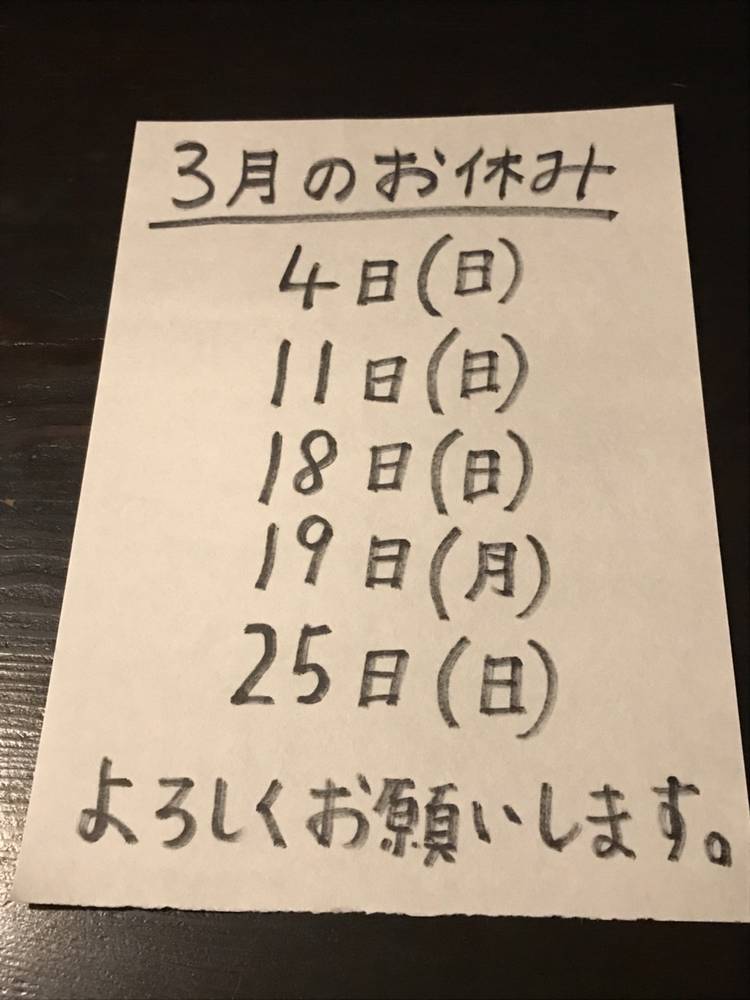 3月のお休み
4日(日)
11日(日)
18日(日)
19日(月)
25日(日)
よろしくお願いします。